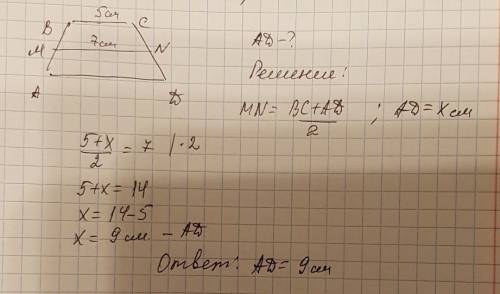 5см
B C
7см
M N
A D
AD-?
Решение:
MN = BC+AD/2 ; AD = x см
5+x/2 = 7 | ·2
5+x = 14
x = 14-5
x = 9 см - AD
Ответ: AD = 9 см